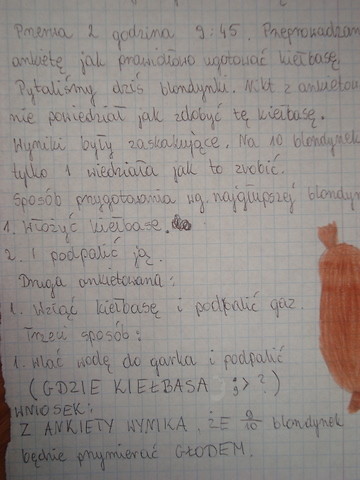 Pnenia 2 godzina 9:45. Przeprowadzam
ankietę jak prawidłowo ugotować kiełbasę.
Pytaliśmy dziś blondynki. Nikt z ankietow
nie powiedział jak zdobyć tę kiełbasę.
Wyniki były zaskakujące. Na 10 blondynek
tylko 1 wiedziała jak to zrobić.
Sposób przygotowania wg. najgłupszej blondyn
1. Włożyć kiełbasę.
2. I podpalić ją.
Druga ankietowana:
1. Wziąć kiełbasę i podpalić gaz.
Trzeci sposób:
1. Wlać wodę do garka i podpalić
(GDZIE KIEŁBASA ?)
WNIOSEK:
Z ANKIETY WYNIKA, ŻE 9/10 blondynek
będzie przymierać GŁODEM.